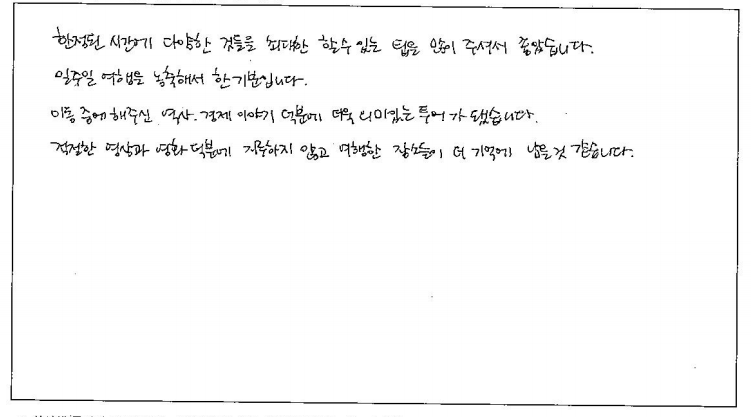 한정된 시간에 다양한 것들을 최대한 할 수 있는 팁을 많이 주셔서 좋았습니다.
일주일 여행을 농축해서 한 기분입니다.
이동 중에 해주신 역사. 경제 이야기 덕분에 더욱 의미있는 투어가 됐습니다.
적절한 영상과 영화 덕분에 지루하지 않고 여행한 장소들이 더 기억에 남을 것 같습니다.